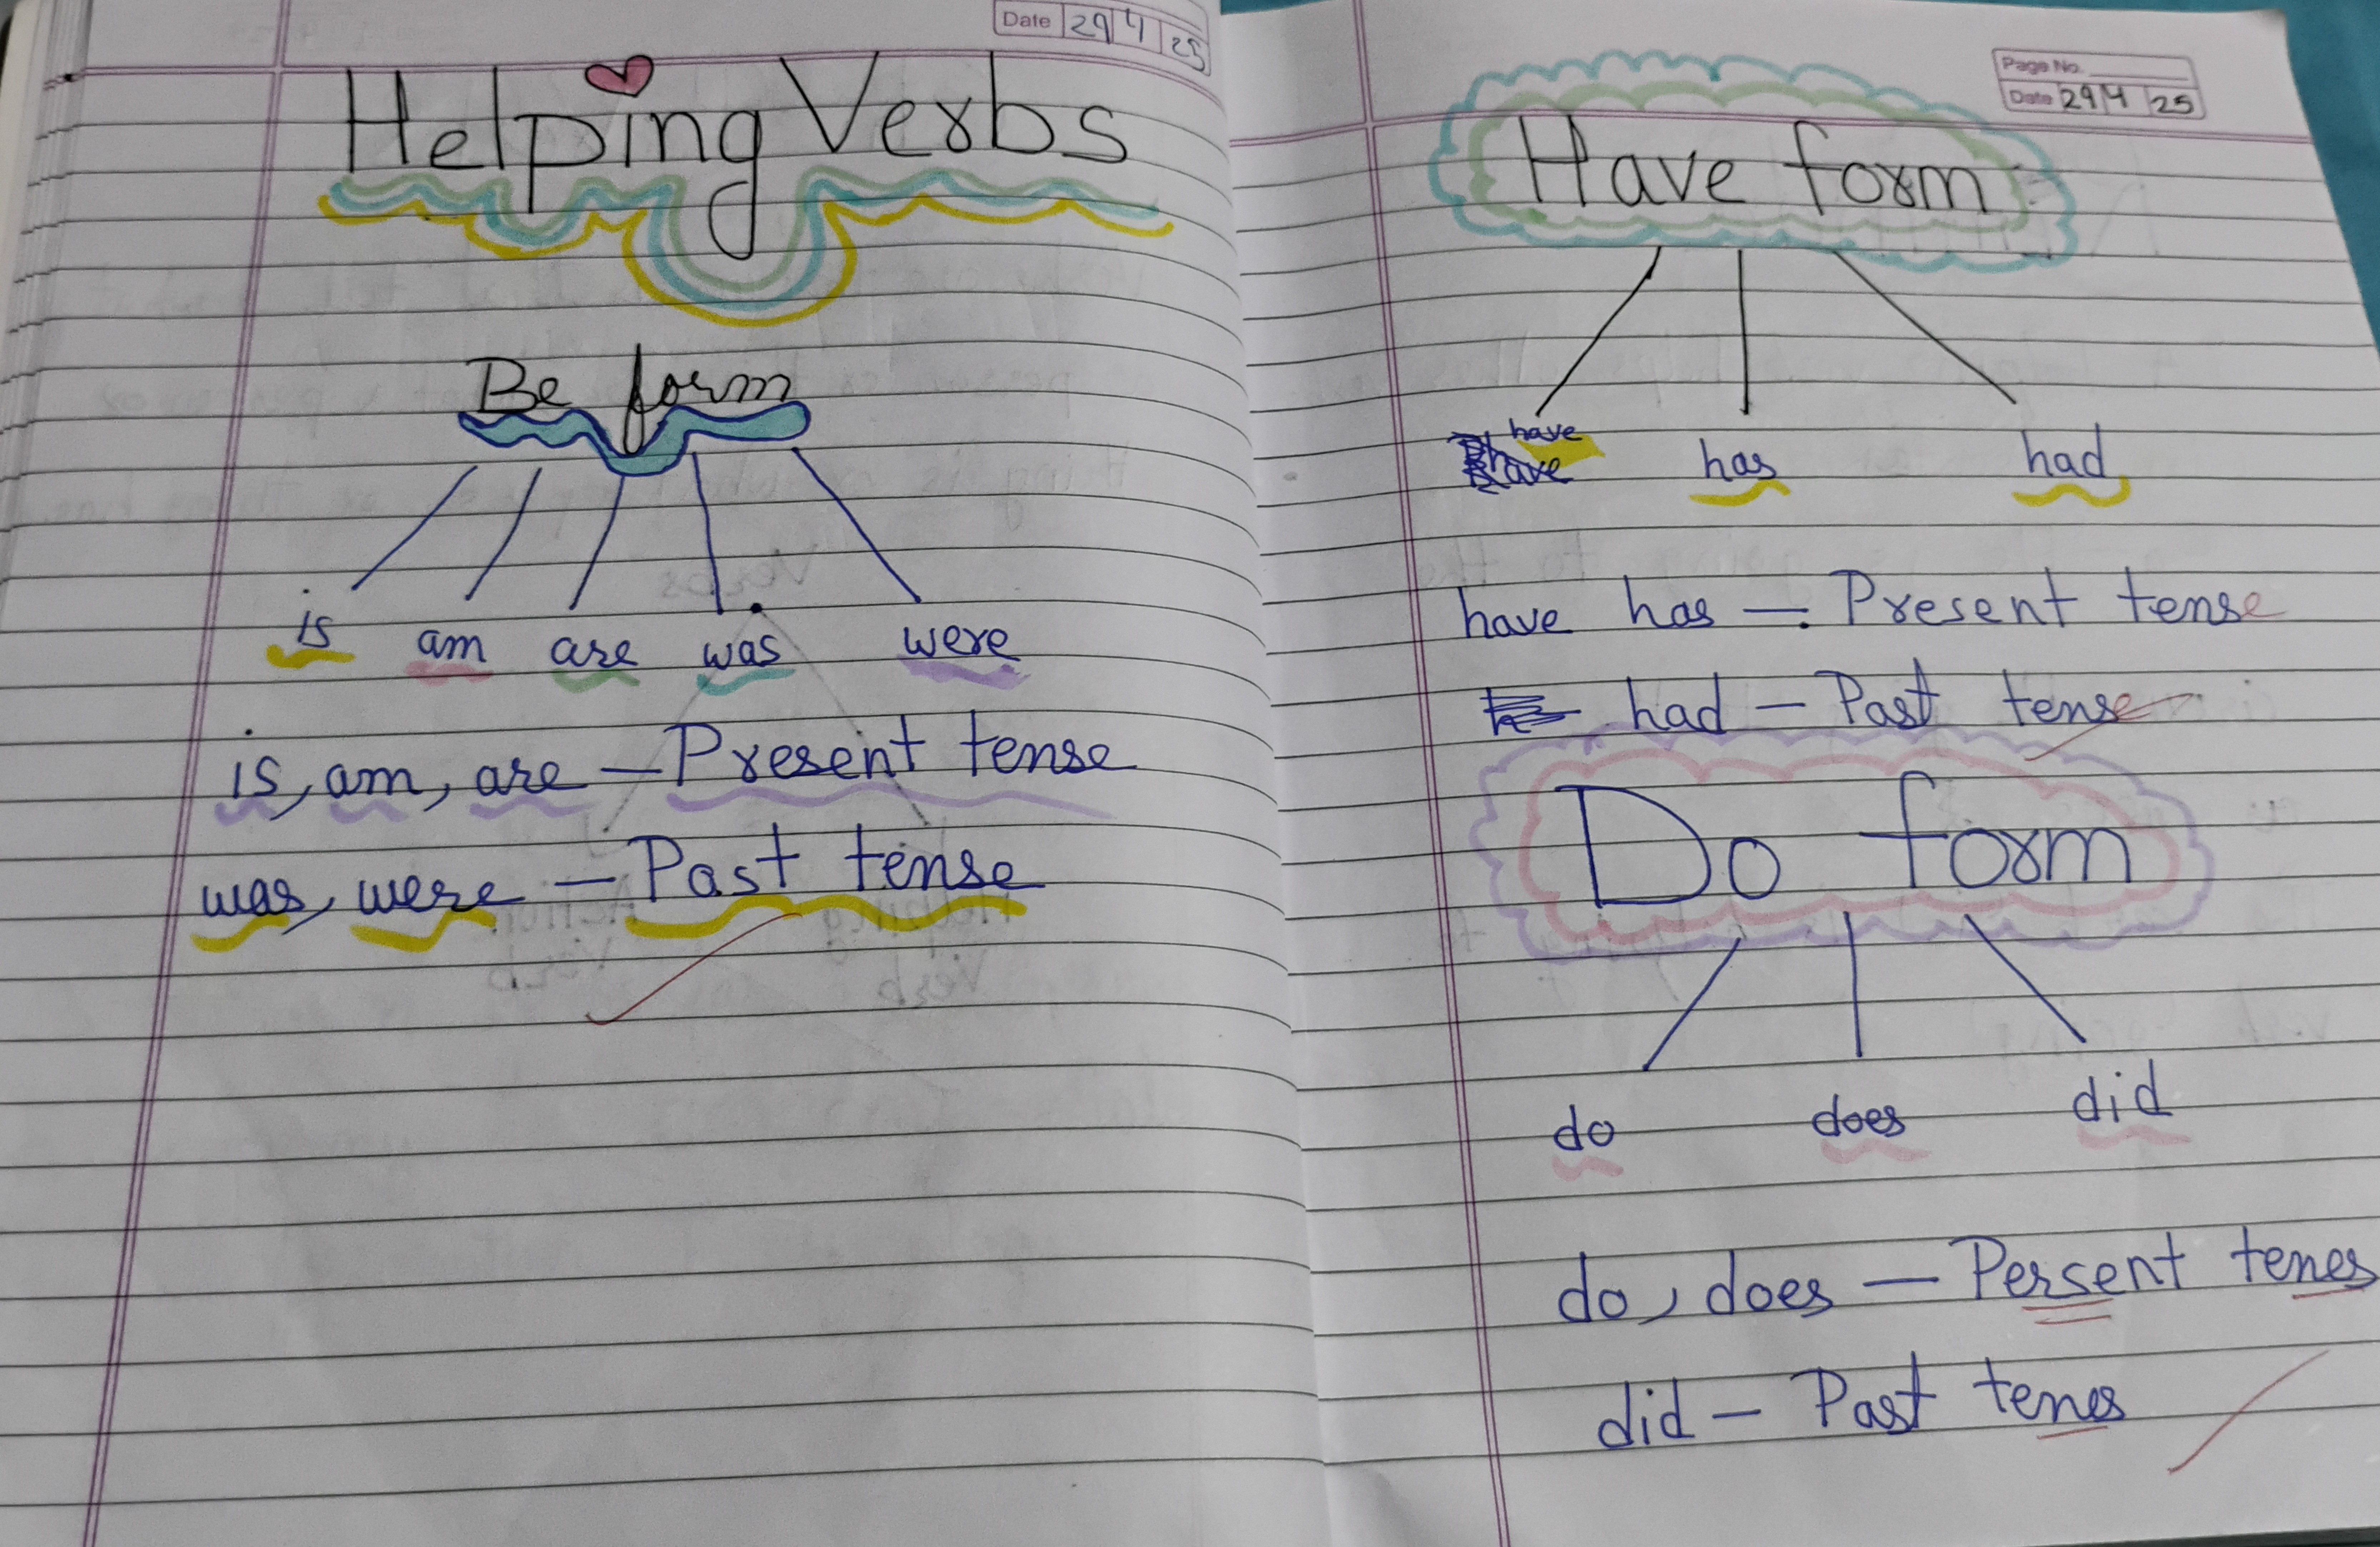 Date 29 4 25
Helping Verbs
Be form
is am are was were
is, am, are — Present tense
was, were — Past tense
Page No.
Date 29 4 25
Have form
have
have has had
have has — Present tense
had — Past tense
Do form
do does did
do, does — Persent tenes
did — Past tenes